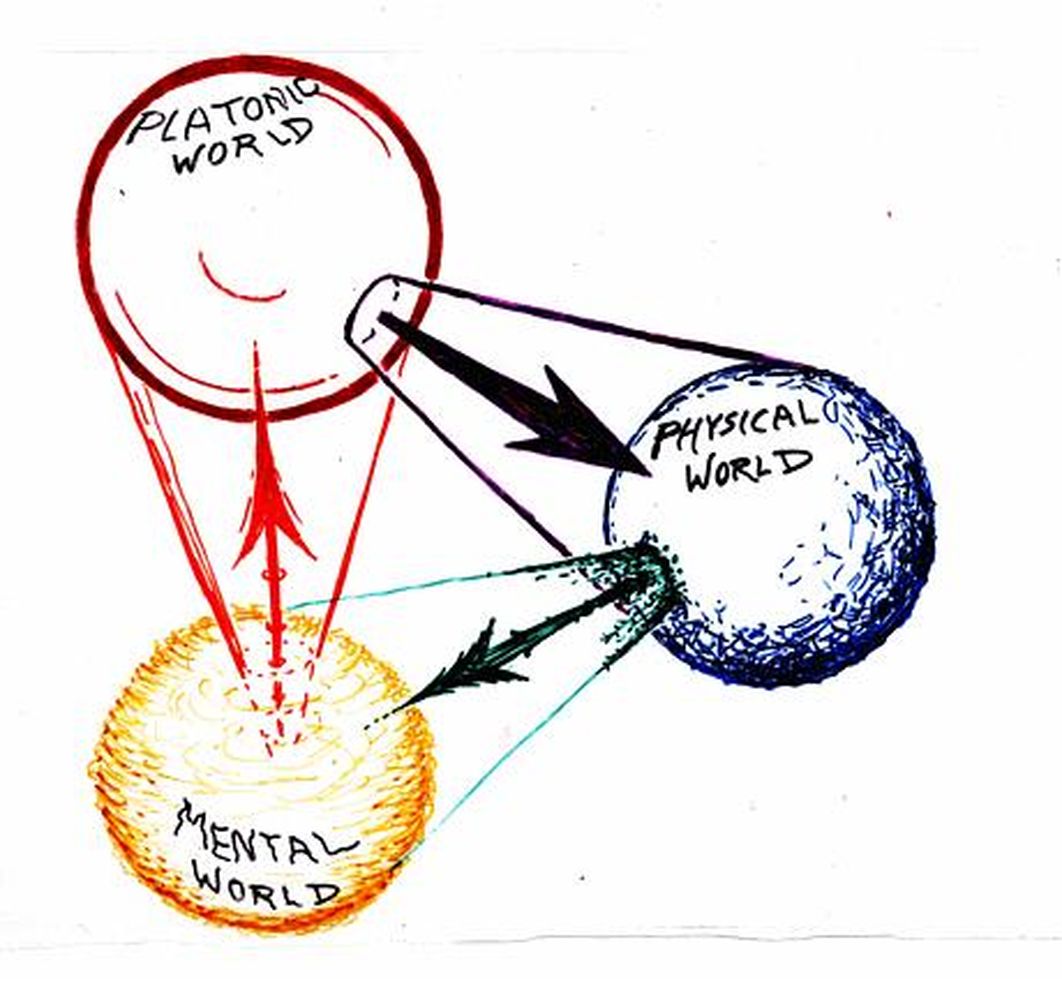 PLATONIC
WORLD
PHYSICAL
WORLD
MENTAL
WORLD